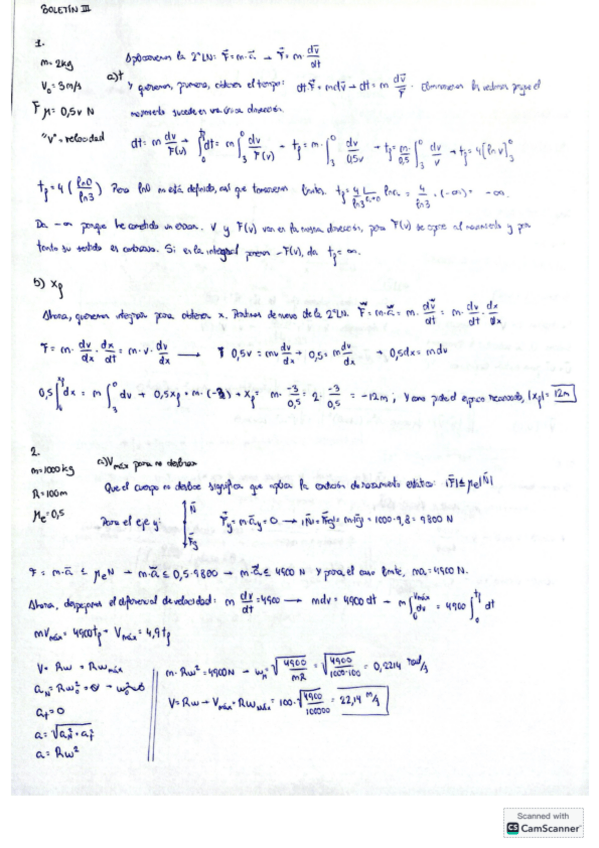 BOLETÍN III
1.
m=2kg
V₀=3m/s
Fμ=0,5v N
"V"=velocidad
a) t
Aplicaremos la 2ªLN: F⃗=m·a⃗ → F⃗=m·dv⃗/dt
Y queremos, primero, obtener el tiempo: dt·F⃗=mdv⃗→dt=m dv⃗/F⃗. Eliminamos los vectores porque el
movimiento sucede en una única dirección.
dt=m dv/F(v) → ∫₀^tf dt=m∫₃⁰ dv/F(v) → tf=m·∫₃⁰ dv/0,5v → tf=m/0,5 ∫₃⁰ dv/v → tf=4[ln v]₃⁰
tf=4(ln0/ln3) Pero ln0 no está definido, así que tomaremos límites. = 4/ln3·(-∞)= -∞.
Da -∞ porque he cometido un error. V y F(v) van en la misma dirección, pero F(v) se opone al movimiento y por
tanto su sentido es contrario. Si en la integral ponemos -F(v), da tf=∞.
b) xf
Ahora, queremos integrar para obtener x. Partimos de nuevo de la 2ªLN. F⃗=m·a⃗=m·dv⃗/dt=m·dv/dt·dx/dx
F=m·dv/dx·dx/dt=m·v·dv/dx → 0,5v=mv dv/dx → 0,5=m dv/dx → 0,5dx=mdv
0,5∫₀^xf dx=m∫₃⁰dv → 0,5xf=m·(-3) → xf=m·-3/0,5=2·-3/0,5=-12m; |xf|=12m
2.
m=1000kg
R=100m
μe=0,5
a) Vmáx para no deslizar
Que el cuerpo no deslice significa que aplica la condición de rozamiento estático: |F⃗|≤μe|N⃗|
Para el eje y: N⃗ F⃗g F⃗y=m·a⃗y=0 → |N⃗|=|F⃗g|=m|g⃗|=1000·9,8=9800 N
F=m·a⃗≤μeN → m·a⃗≤0,5·9800 → m·a⃗≤4900 N y para el caso límite, ma=4900 N.
Ahora, despejamos el diferencial de velocidad: m dv/dt=4900 → mdv=4900dt → m∫₀^Vmáx dv=4900∫₀^tf dt
mVmáx=4900tf → Vmáx=4,9tf
V=Rw → Rwmáx
aₜ=0
a=√(aN²+aₜ²)
a=Rw²
m·Rw²=4900N → =√(4900/mR)=√(4900/1000·100)=0,2214 rad/s
V=Rw→Vmáx=Rwmáx=100·√(4900/100000)=22,14 m/s
Scanned with
CS CamScanner